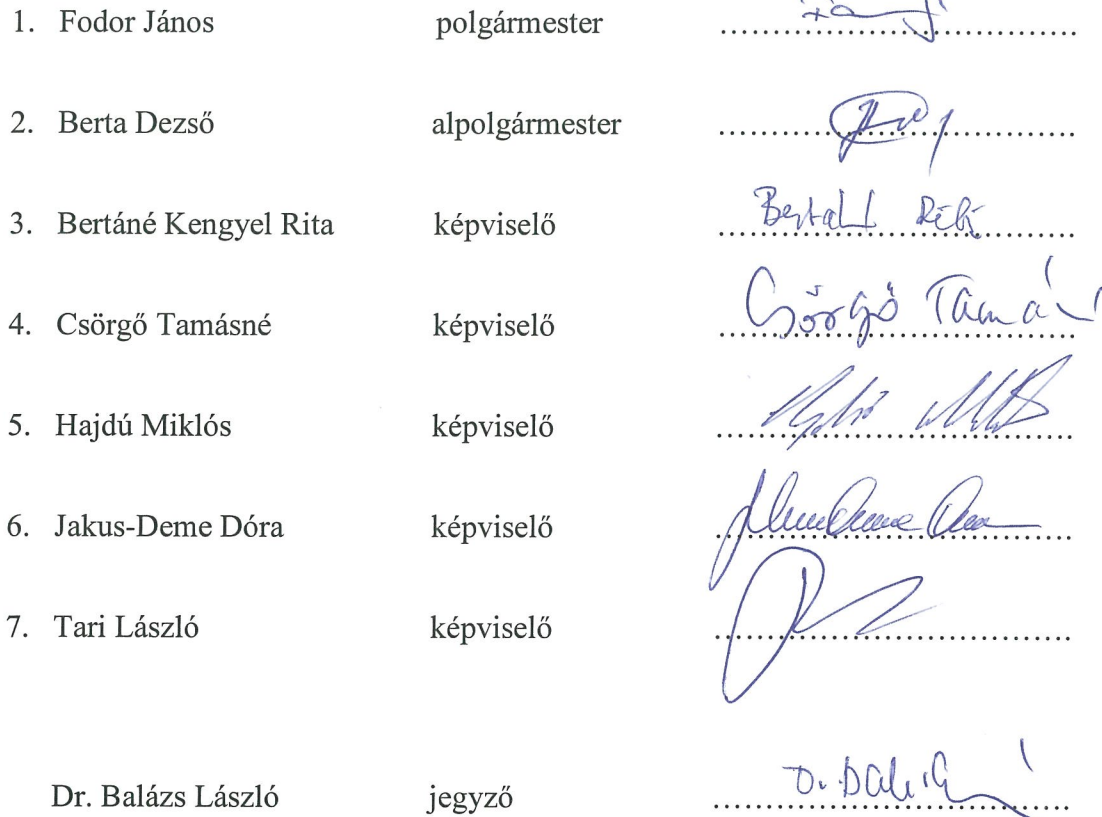 1. Fodor János polgármester ....................
2. Berta Dezső alpolgármester ....................
3. Bertáné Kengyel Rita képviselő ....................
4. Csörgő Tamásné képviselő Csörgő Tamás
5. Hajdú Miklós képviselő ....................
6. Jakus-Deme Dóra képviselő ....................
7. Tari László képviselő ....................
Dr. Balázs László jegyző ....................